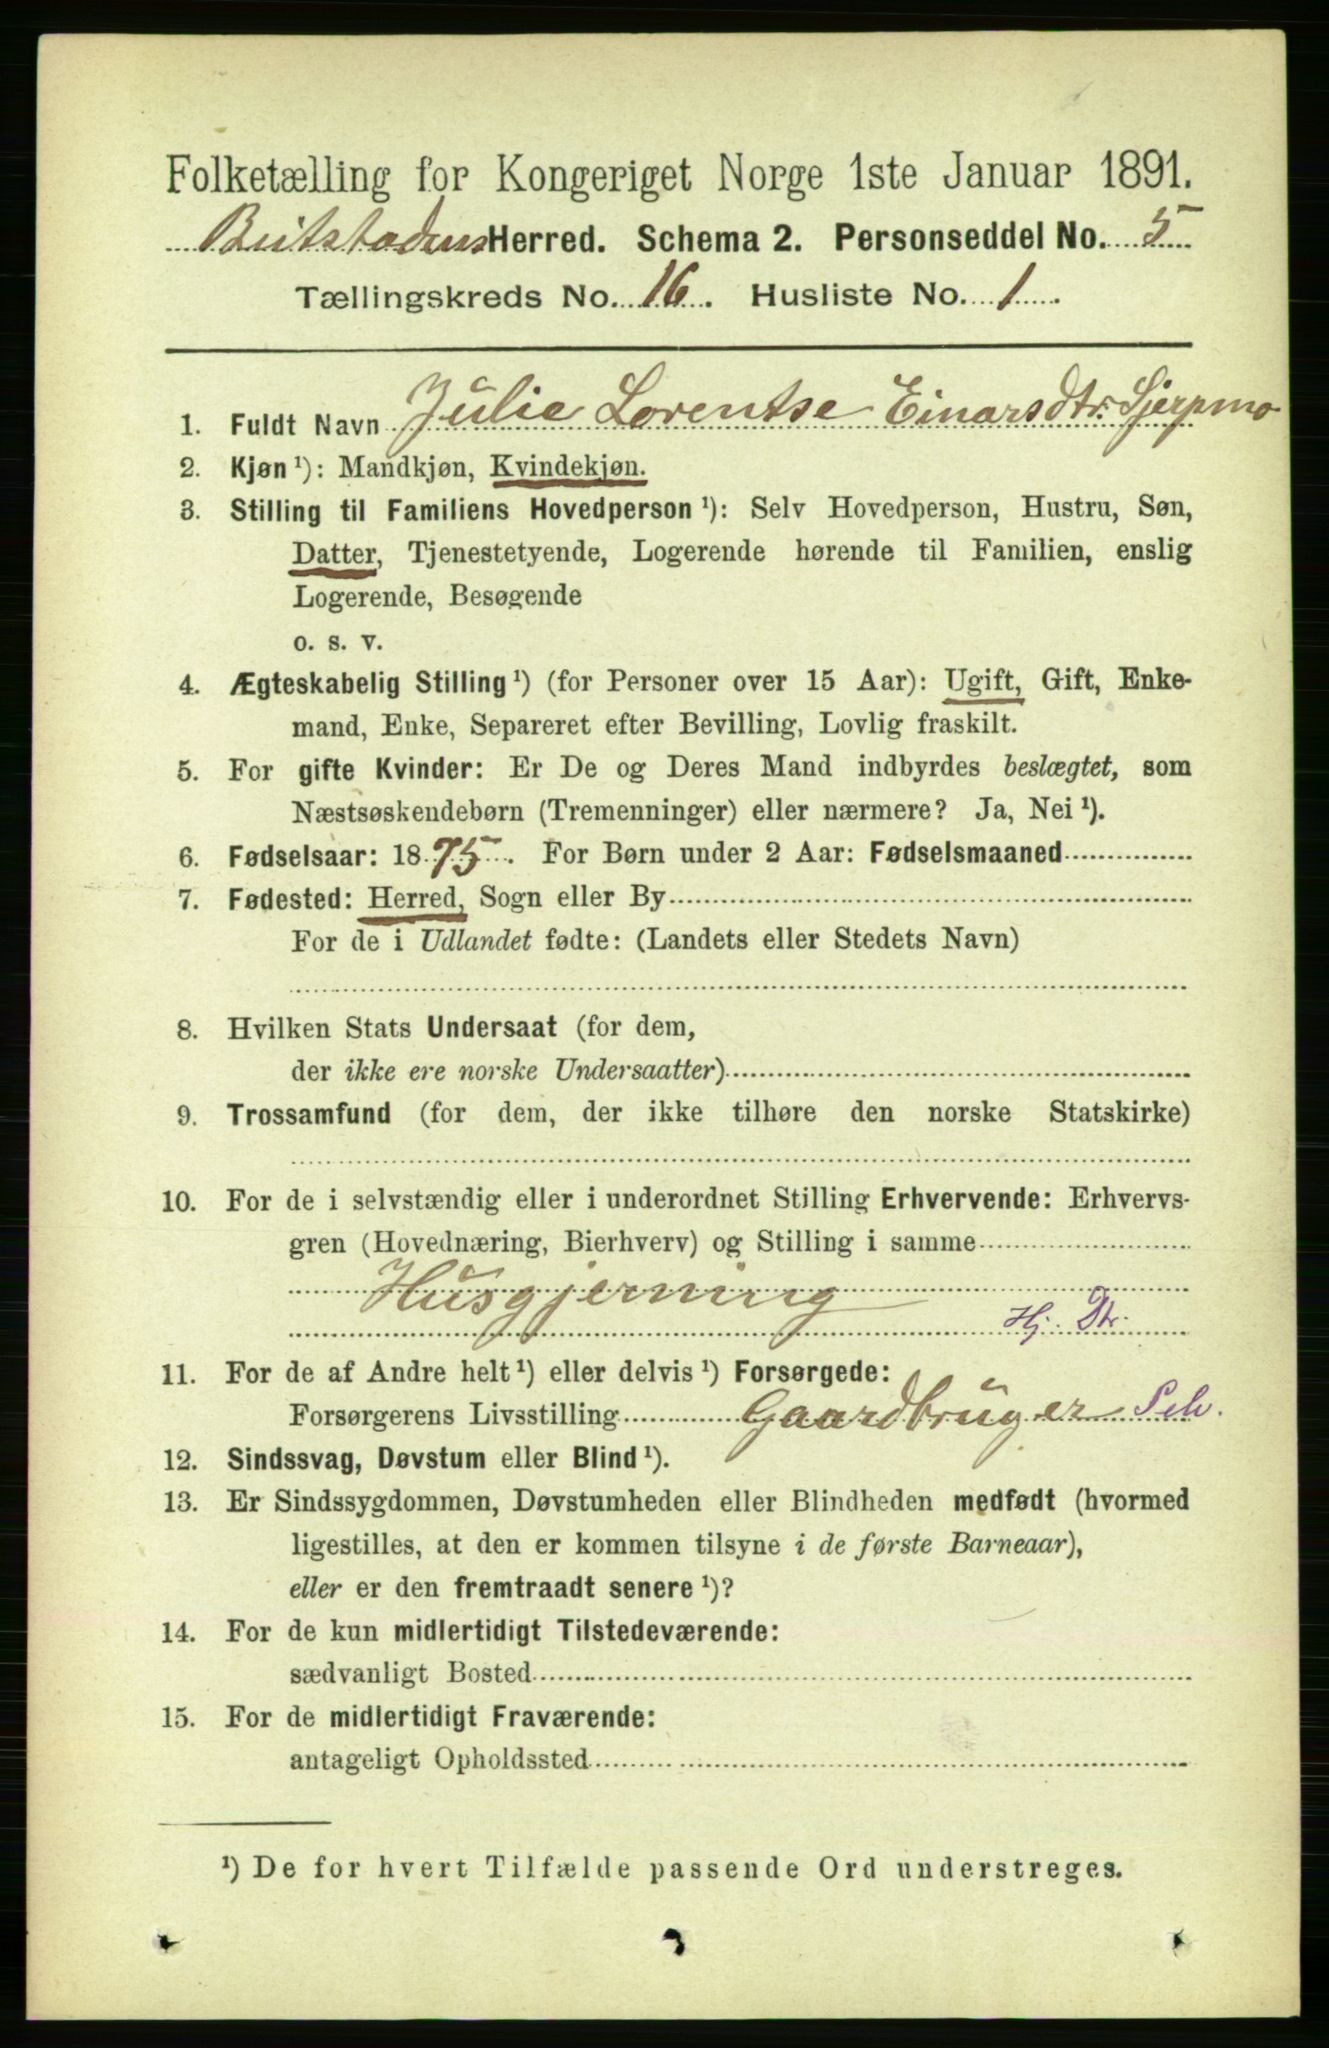 Folketælling for Kongeriget Norge 1ste Januar 1891.
Beitstadens Herred. Schema 2. Personseddel No. 5
Tællingskreds No. 16. Husliste No. 1.
1. Fuldt Navn Julie Lorentse Einarsdtr. Sjerpmo
2. Kjøn ¹): Mandkjøn, Kvindekjøn.
3. Stilling til Familiens Hovedperson ¹): Selv Hovedperson, Hustru, Søn,
Datter, Tjenestetyende, Logerende hørende til Familien, enslig
Logerende, Besøgende
o. s. v.
4. Ægteskabelig Stilling ¹) (for Personer over 15 Aar): Ugift, Gift, Enke-
mand, Enke, Separeret efter Bevilling, Lovlig fraskilt.
5. For gifte Kvinder: Er De og Deres Mand indbyrdes beslægtet, som
Næstsøskendebørn (Tremenninger) eller nærmere? Ja, Nei ¹).
6. Fødselsaar: 1875. For Børn under 2 Aar: Fødselsmaaned
7. Fødested: Herred, Sogn eller By
For de i Udlandet fødte: (Landets eller Stedets Navn)
8. Hvilken Stats Undersaat (for dem,
der ikke ere norske Undersaatter)
9. Trossamfund (for dem, der ikke tilhøre den norske Statskirke)
10. For de i selvstændig eller i underordnet Stilling Erhvervende: Erhvervs-
gren (Hovednæring, Bierhverv) og Stilling i samme
Husgjerning
Hj. Dtr.
11. For de af Andre helt ¹) eller delvis ¹) Forsørgede:
Forsørgerens Livsstilling Gaardbruger Selv.
12. Sindssvag, Døvstum eller Blind ¹).
13. Er Sindssygdommen, Døvstumheden eller Blindheden medfødt (hvormed
ligestilles, at den er kommen tilsyne i de første Barneaar),
eller er den fremtraadt senere ¹)?
14. For de kun midlertidigt Tilstedeværende:
sædvanligt Bosted
15. For de midlertidigt Fraværende:
antageligt Opholdssted
¹) De for hvert Tilfælde passende Ord understreges.